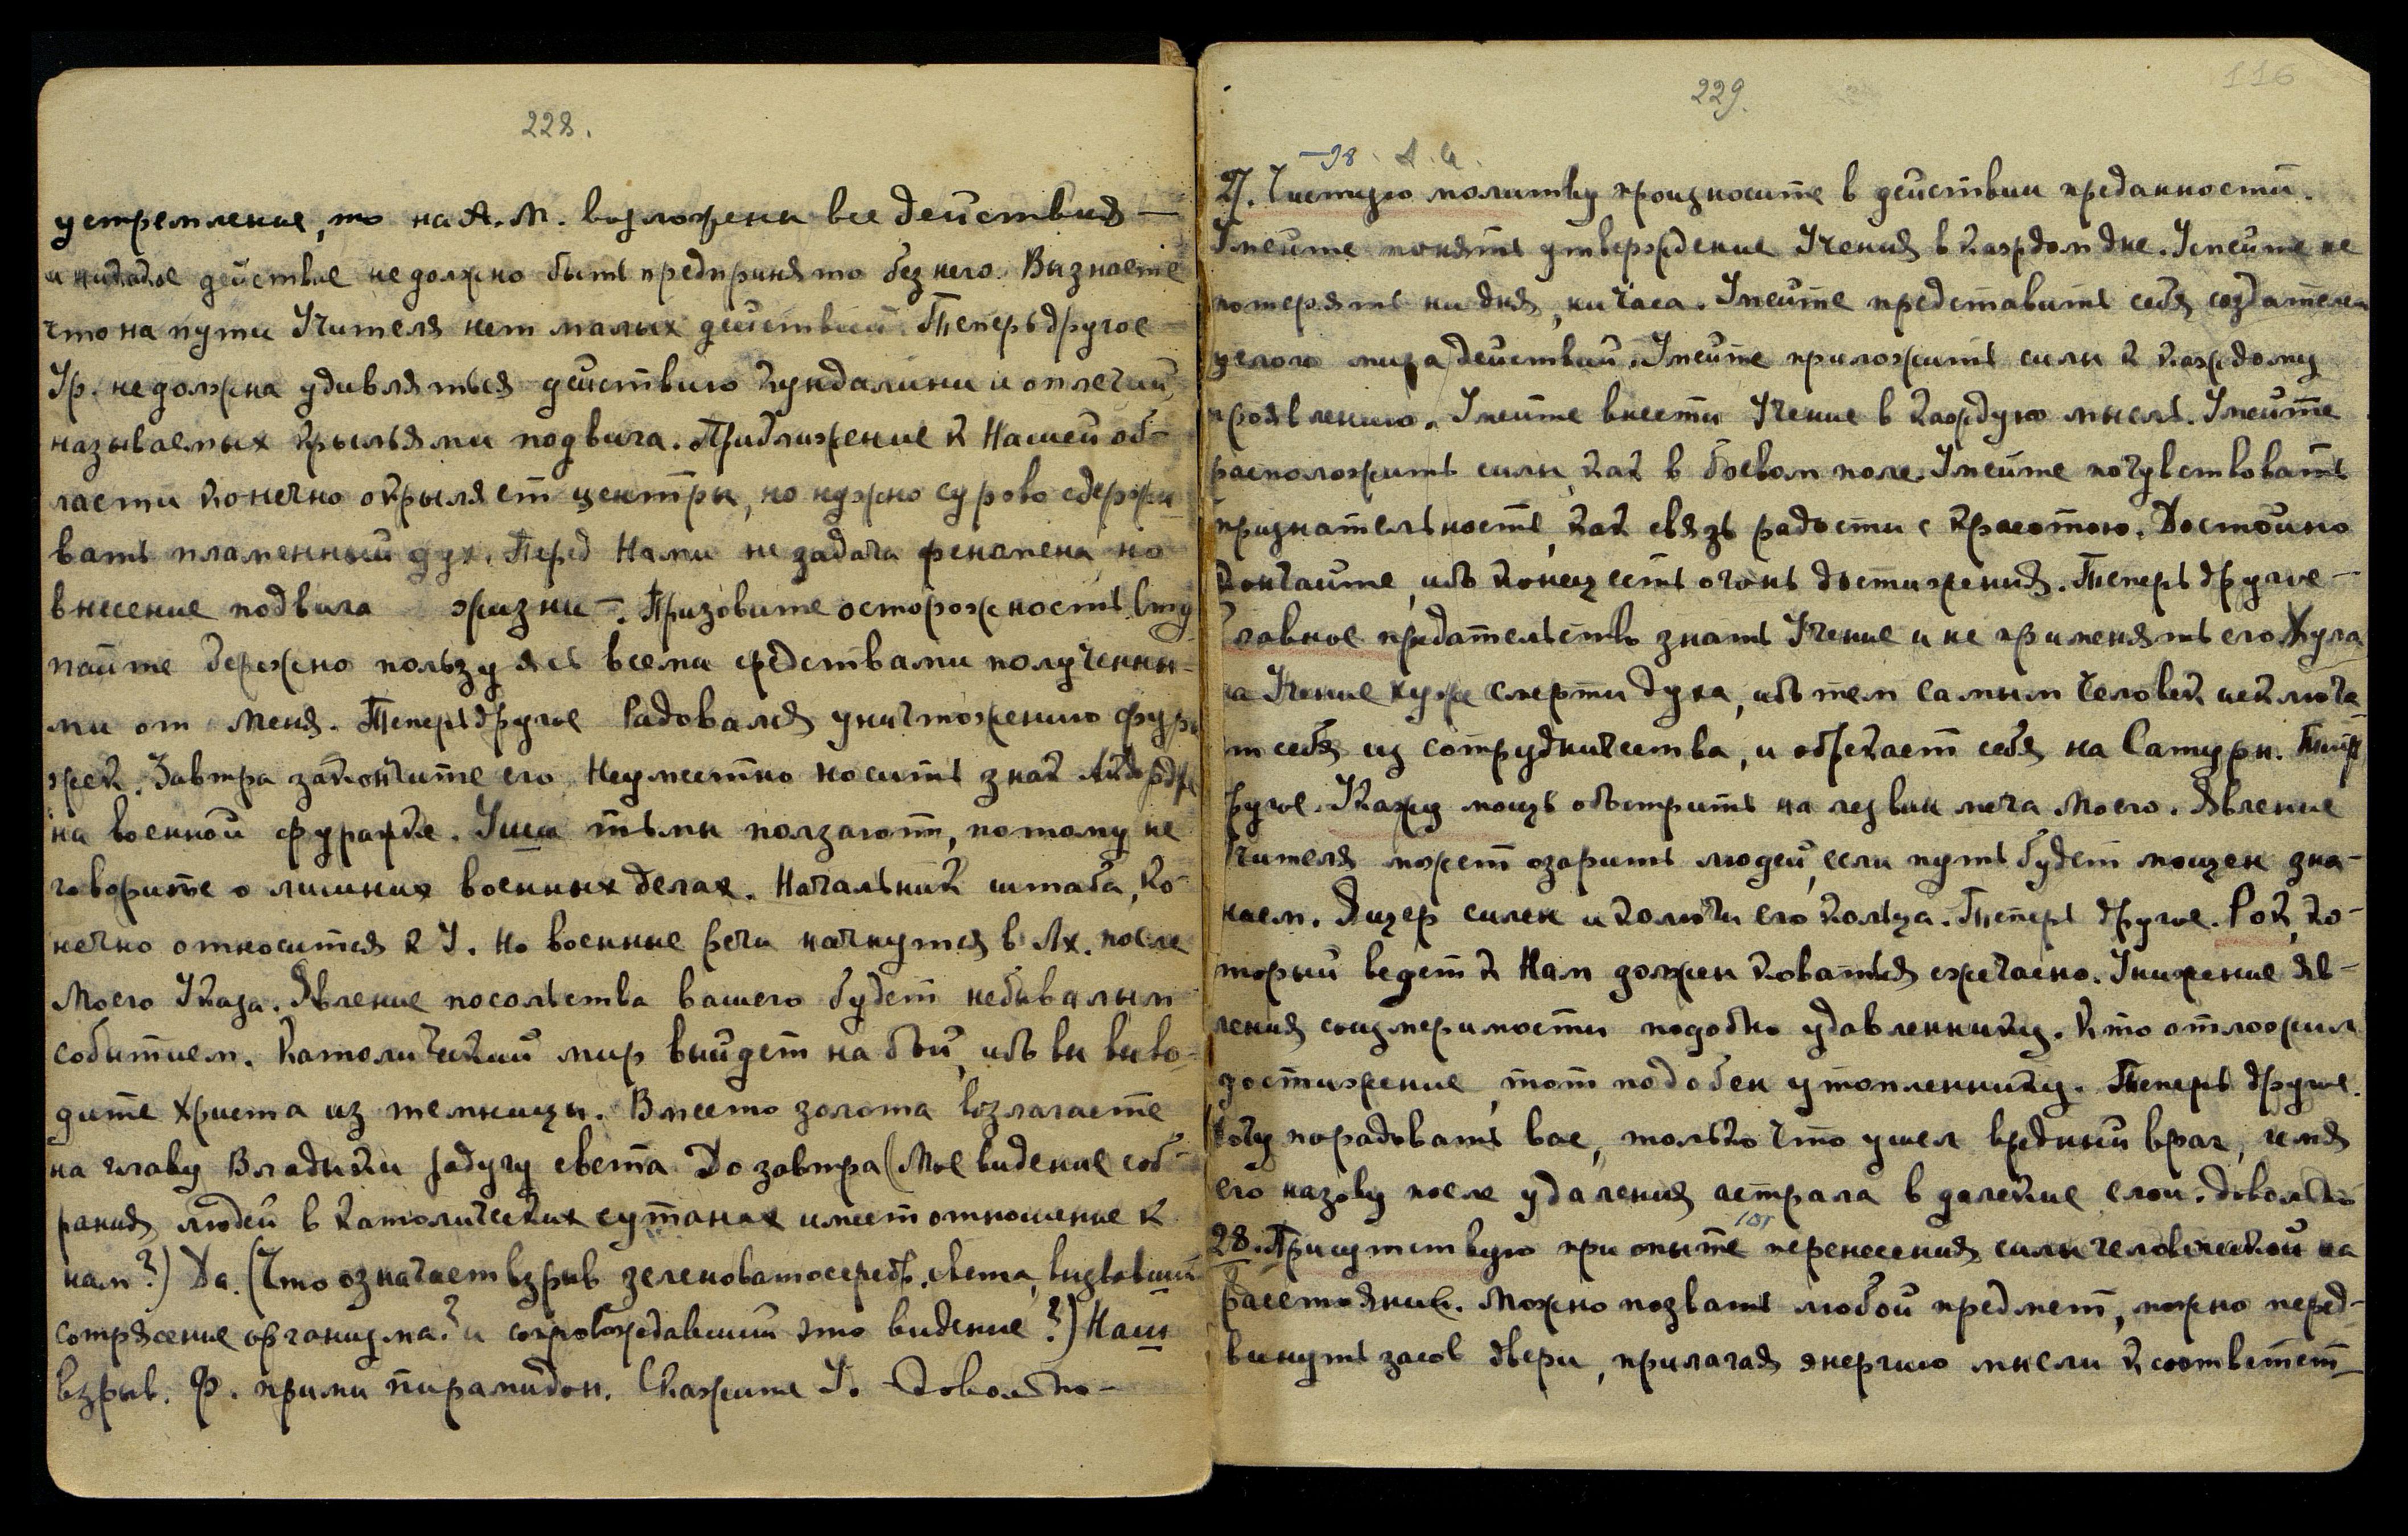 228.
устремление, то на А.М. возложены все действия —
и никакое действие не должно быть предпринято без него. Вы знаете
что на пути Учителя нет малых действий. Теперь другое —
Ур. не должна удивляться действию Кундалини и оплечий,
называемых крыльями подвига. Приближение к Нашей об-
ласти конечно окрыляет центры, но нужно сурово сдержи-
вать пламенный дух. Перед Нами не задача феномена, но
внесение подвига жизни —. Призовите осторожность, всту
пайте бережно пользуясь всеми средствами полученны-
ми от Меня. Теперь другое Радовался уничтожению фура
жек. Завтра закончите его. Неуместно носить знак
на военной фуражке. Уши тьмы ползают, потому не
говорите о лишних военных делах. Начальник штаба, ко-
нечно относится к У. Но военные речи начнутся в Лх. после
Моего Указа. Явление посольства вашего будет небывалым
событием. Католический мир выйдет на бой, ибо вы выво-
дите Христа из темницы. Вместо золота возлагаете
на главу Владыки радугу света До завтра (Мое видение соб-
рания людей в католических сутанах имеет отношение к
нам?) Да. (Что означает взрыв зеленоватосеребр. света, вызвавший
сотрясение организма? и сопровождавший это видение?) Наш
взрыв. Ф. прими пирамидон. Скажите У. Довольно —
229.
116
— 98. А.Й.
27. Чистую молитву произносите в действии преданности.
Умейте понять утверждение Учения в каждом дне. Умейте не
потерять ни дня, ни часа. Умейте представить себя создателем
целого мира действий. Умейте приложить силы к каждому
проявлению. Умейте внести Учение в каждую мысль. Умейте
расположить силы, как в боевом поле. Умейте почувствовать
признательность, как связь радости с красотою. Достойно
кончайте, ибо конец есть огонь достижения. Теперь другое —
Главное предательство знать Учение и не применять его. Хула
на Учение хуже смерти духа, ибо тем самым человек исключа
ет себя из сотрудничества, и обрекает себя на Сатурн. Тепер
другое. Укажу мощь обострить на лезвии меча Моего. Явление
Учителя может озарить людей, если путь будет мощен зна-
нием. Ящер силен и колючи его кольца. Теперь другое. Рок, ко-
торый ведет к Нам должен коваться ежечасно. Унижение яв-
ления соизмеримости подобно удавленнику. Кто отложил
достижение, тот подобен утопленнику. Теперь другое.
Хочу порадовать вас, только что ушел вредный враг, имя
его назову после удаления астрала в далекие слои. Довольно
28. Присутствую при опыте перенесения силы человеческой на
расстояние. Можно позвать любой предмет, можно перед-
винуть засов двери, прилагая энергию мысли к соответст-